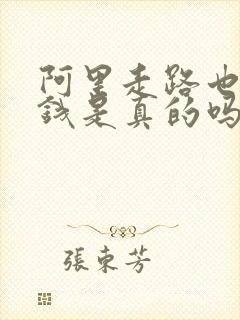 阿里走路也
钱是真的吗
張東芳